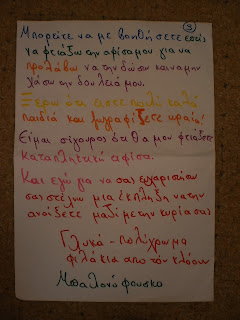 ③
Μπορείτε να με βοηθήσετε εσείς
να φτιάξω την αφίσα μου για να
προλάβω να την δώσω και να μην
χάσω την δουλειά μου.
Ξέρω ότι είστε πολύ καλά
παιδιά και ζωγραφίζετε ωραία!
Είμαι σίγουρος ότι θα μου φτιάξετε
καταπληκτική αφίσα.
Και εγώ για να σας ευχαριστήσω
σας στέλνω μια έκπληξη να την
ανοίξετε μαζί με την κυρία σας
Γλυκά - πολύχρωμα
φιλάκια απο τον κλόουν
Μπαλονόφουσκα